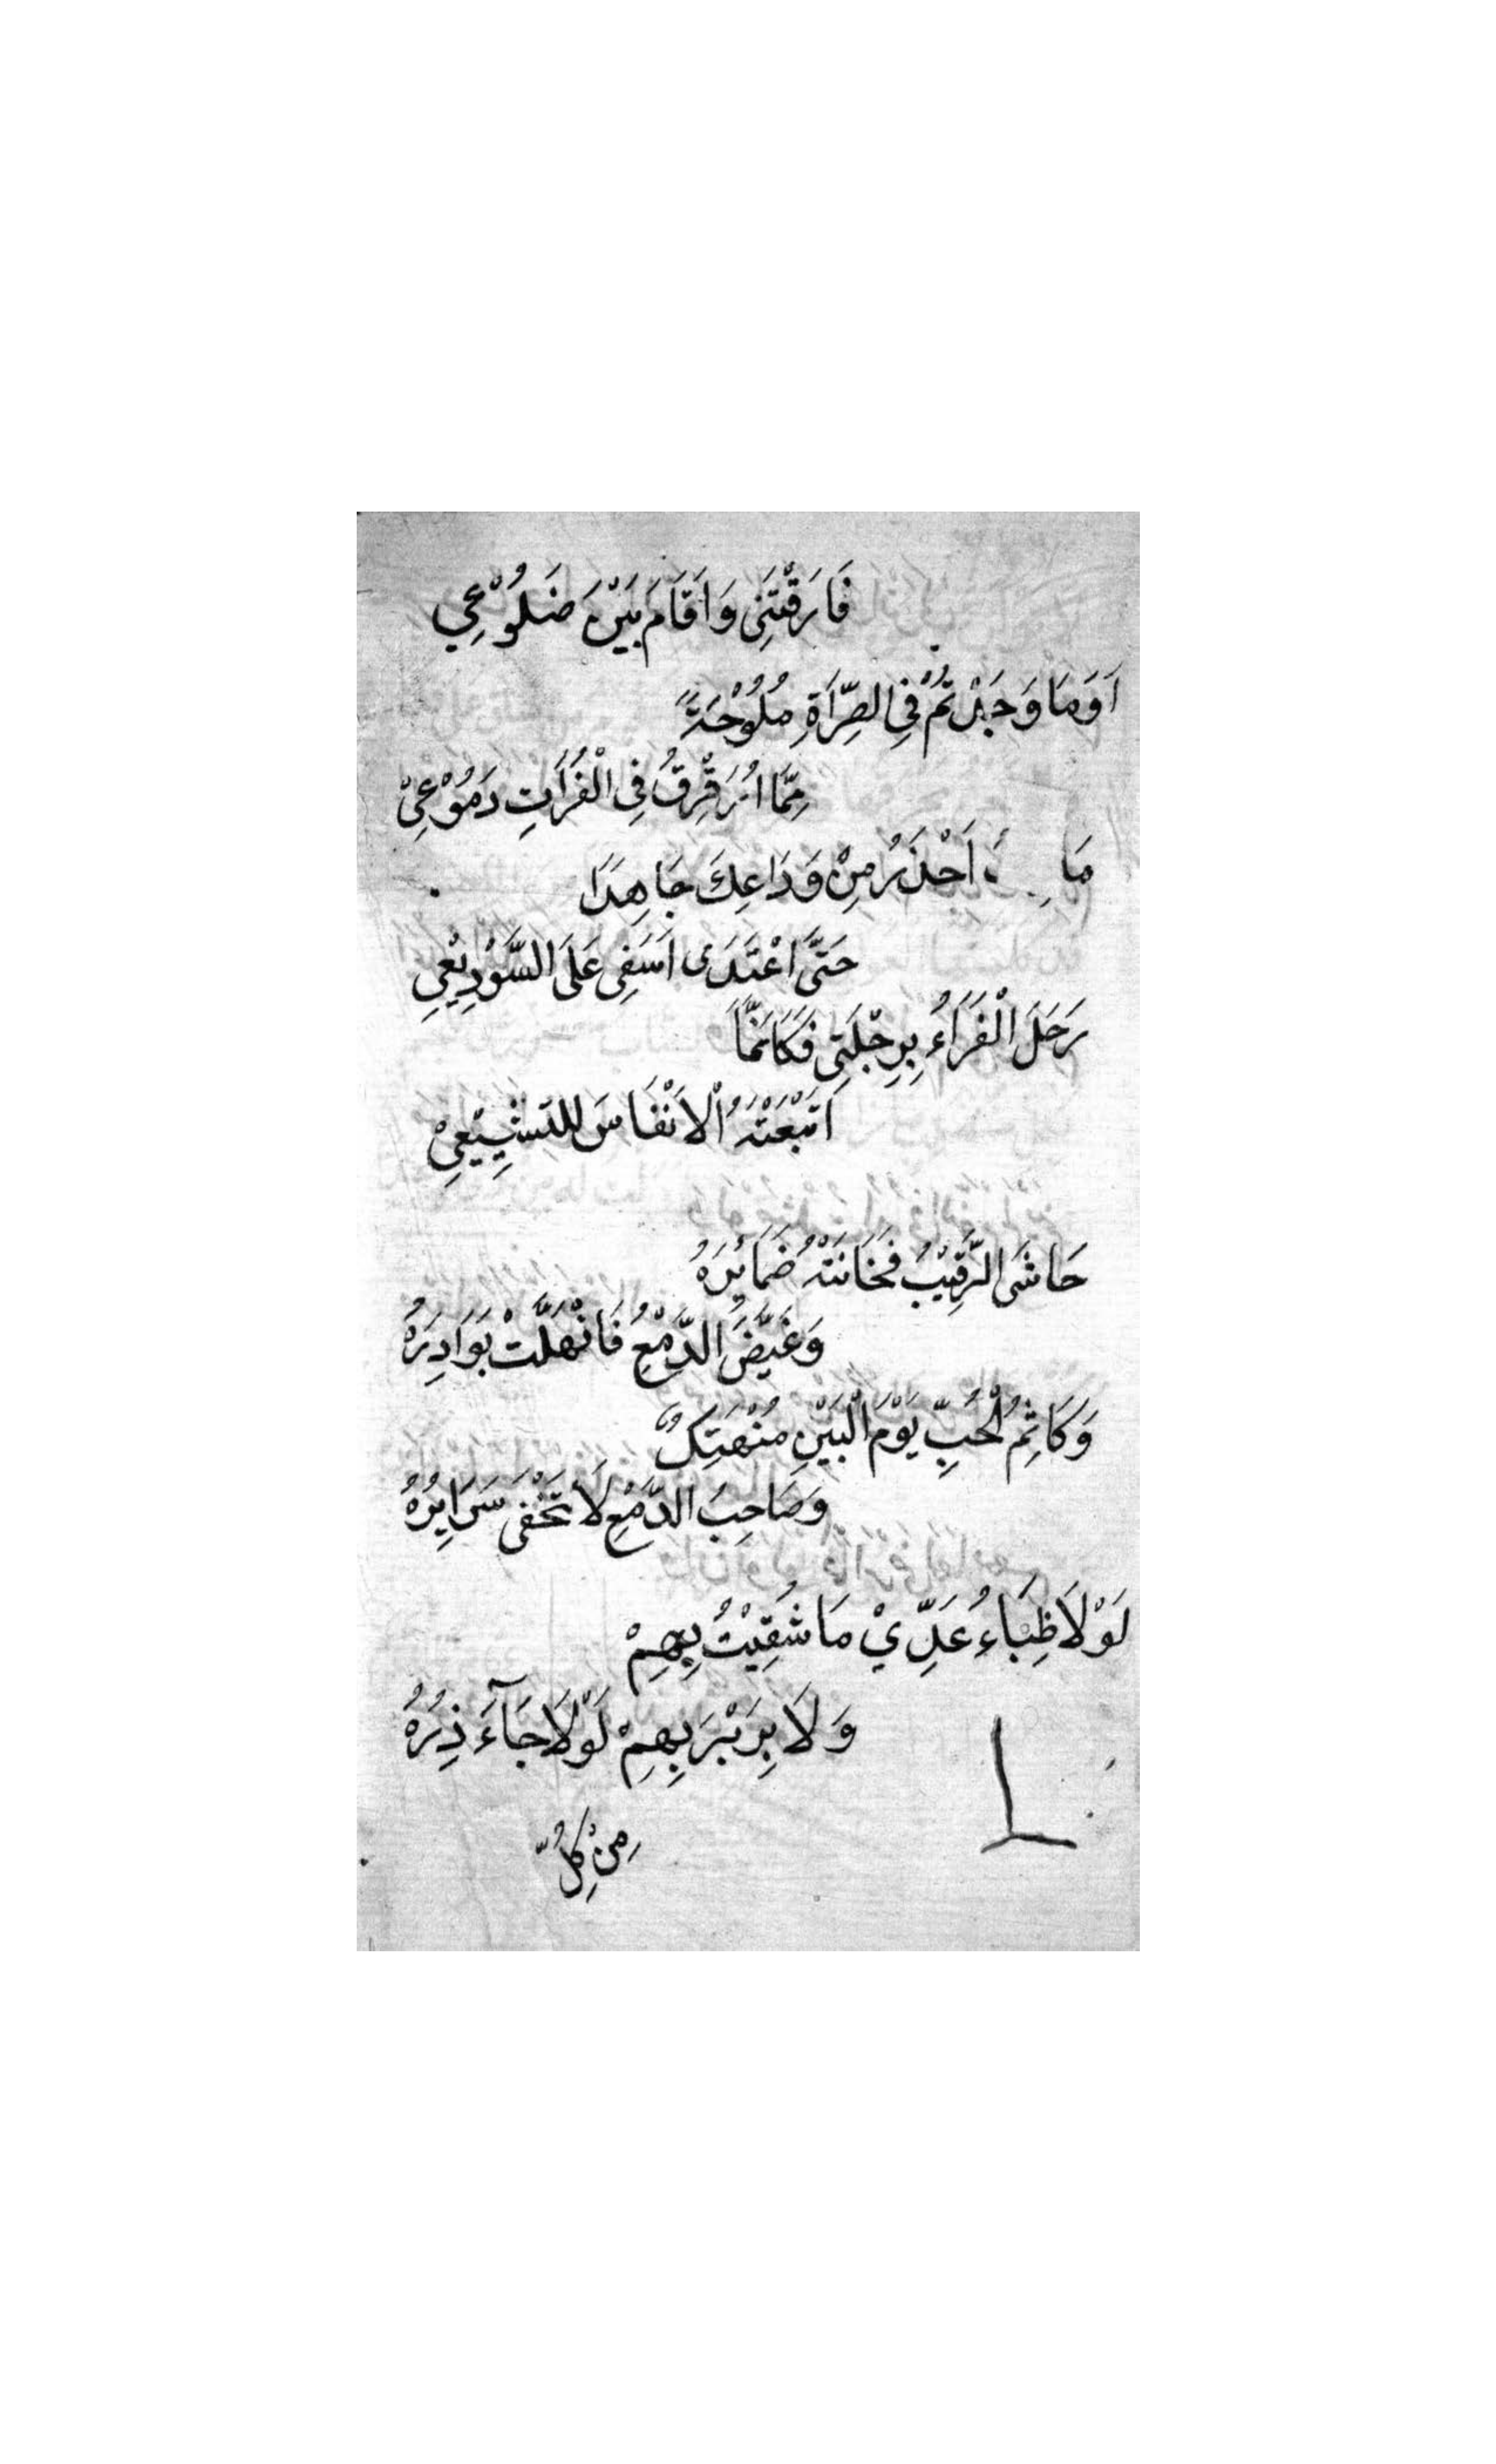 فَارَقْتَنِى وَاَقَامَ بَيْنَ ضَلُوْعِي
اَوَمَا وَجَدْتُمْ فِي الصِّرَاةِ مُلُوْحَةً
مِمَّا اُرَقْرِقُ فِي الْفُرَاتِ دَمُوْعِىْ
مَا اَحْذَرُ مِنْ وَدَاعِكَ جَاهِدًا
حَتَّى اغْتَدَى اَسَفِى عَلَى السَّوْدِيْعِي
رَحَلَ الْفَرَاءُ بِرِحْلَتِى فَكَاَنَّمَا
اَتْبَعْتْهُ الْاَنْفَاسَ لِلتَشْيِيْعِىْ
حَاشَى الرَّقِيْبُ فَخَانَتْهُ ضَمَائِرُهُ
وَغَيَّضَ الدَّمْعُ فَانْهَلَّتْ بَوَادِرَهُ
وَكَاتِمُ الْحُبِّ يَوْمَ الْبَيْنِ مُنْهَتِكٌ
وَصَاحِبُ الدَّمْعِ لَا تَخْفَى سَرَايِرُهُ
لَوْلَا ظِبَاءُ عَدِّيْ مَا شُقِيْتُ بِهِمْ
وَلَا بِرَبْرَبِهِمْ لَوْلَا جَآءَذِرُهُ
مِنْ كُلِّ